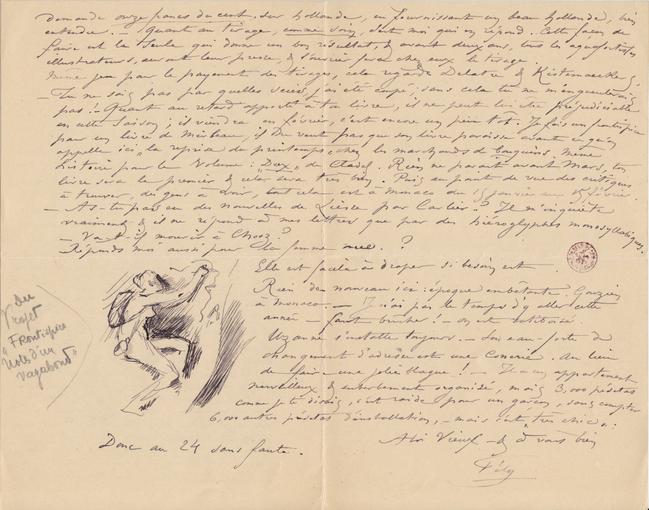 demande onze francs du cent, sur Hollande, en fournissant un beau Hollande, bien
entendu. — Quant au tirage, comme vous, c'est moi qui en répond. Cette façon de
faire est la seule qui donne un bon résultat, & avant deux ans, tous les aquafortistes
illustrateurs, auront leur presse, & l'ouvrier fera chez eux le tirage.
Même jeu pour le payement des tirages, cela regarde Delatre & Kistemaeckers.
— Tu ne sais pas par quelles j'ai été coupé, sans cela tu ne m'engueulerais
pas! — Quant au retard apporté à ta livre, il ne peut lui être préjudiciable
en cette saison; il viendra en Février, c'est encore un peu tot. Je fais un frontispice
pour un livre de Mirbeau, il ne veut pas que son livre paraisse avant ce qu'on
appelle ici "la reprise du printemps" chez les marchands de bouquins. Même
histoire pour le volume: "Deux" de Cladel. Rien ne parait avant Mars, ton
livre sera le premier & cela sera très bien. Puis en fait de vue des critiques
à trouver, de gens à voir, tout cela est à Monaco du 15 janvier au 15 février.
— As-tu pas eu des nouvelles de Liesse par Carlier? Il m'inquiète
vraiment, & il ne répond à mes lettres que par des hiéroglyphes monosyllabiques.
— Va-t-il mourir à Chooz?
Réponds moi aussi pour la femme nue. ?
Elle est facile à draper si besoin est
Rien de nouveau ici: époque embêtante
à Monaco. — Je n'ai pas le temps d'y aller cette
année — faut bucher! — on est
Uzanne s'installe toujours. — Son eau-forte de
changement d'adresse est une Au lieu
de faire une jolie blague! — Il a un appartement
merveilleux & organisé, mais 3,000 pésétas
comme je te disais, c'est raide pour un garçon, sans compter
6,000 autres pésétas d'installation, — mais c'est "très chic".
A toi Vieux — & à vous bien
Fély
Donc au 24 sans faute.
Du
Projet
"Frontispice
Noëls d'un
Vagabond"